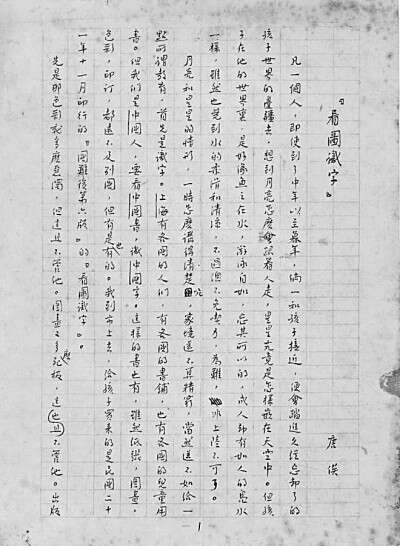 『看圖識字』
唐俟
凡一個人，即使到了中年以至暮年，倘一和孩子接近，便會踏進久經忘却了的
孩子世界的邊疆去，想到月亮怎麼會跟着人走，星星究竟是怎樣嵌在天空中。但孩
子在他的世界裏，是好像魚之在水，游泳自如，忘其所以的，成人却有如人的凫水
一樣，雖然也覺到水的柔滑和清涼，不過總不免吃力，為難，非上陸不可了。
月亮和星星的情形，一時怎麼講得清楚呢，家境還不算精窮，當然還不如給一
點所謂教育，首先是識字。上海有各國的人們，有各國的書鋪，也有各國的兒童用
書。但我們是中國人，要看中國書，識中國字。這樣的書也有，雖然紙張，圖畫，
色彩，印訂，都遠不及別國，但有是也有的。我到市上去，給孩子買來的是民國二十
一年十一月印行的『國難後第六版』的『看圖識字』。
先是那色彩就多麼惡濁，但這且不管他。圖畫又多麼死板，這且也不管他。出版
1